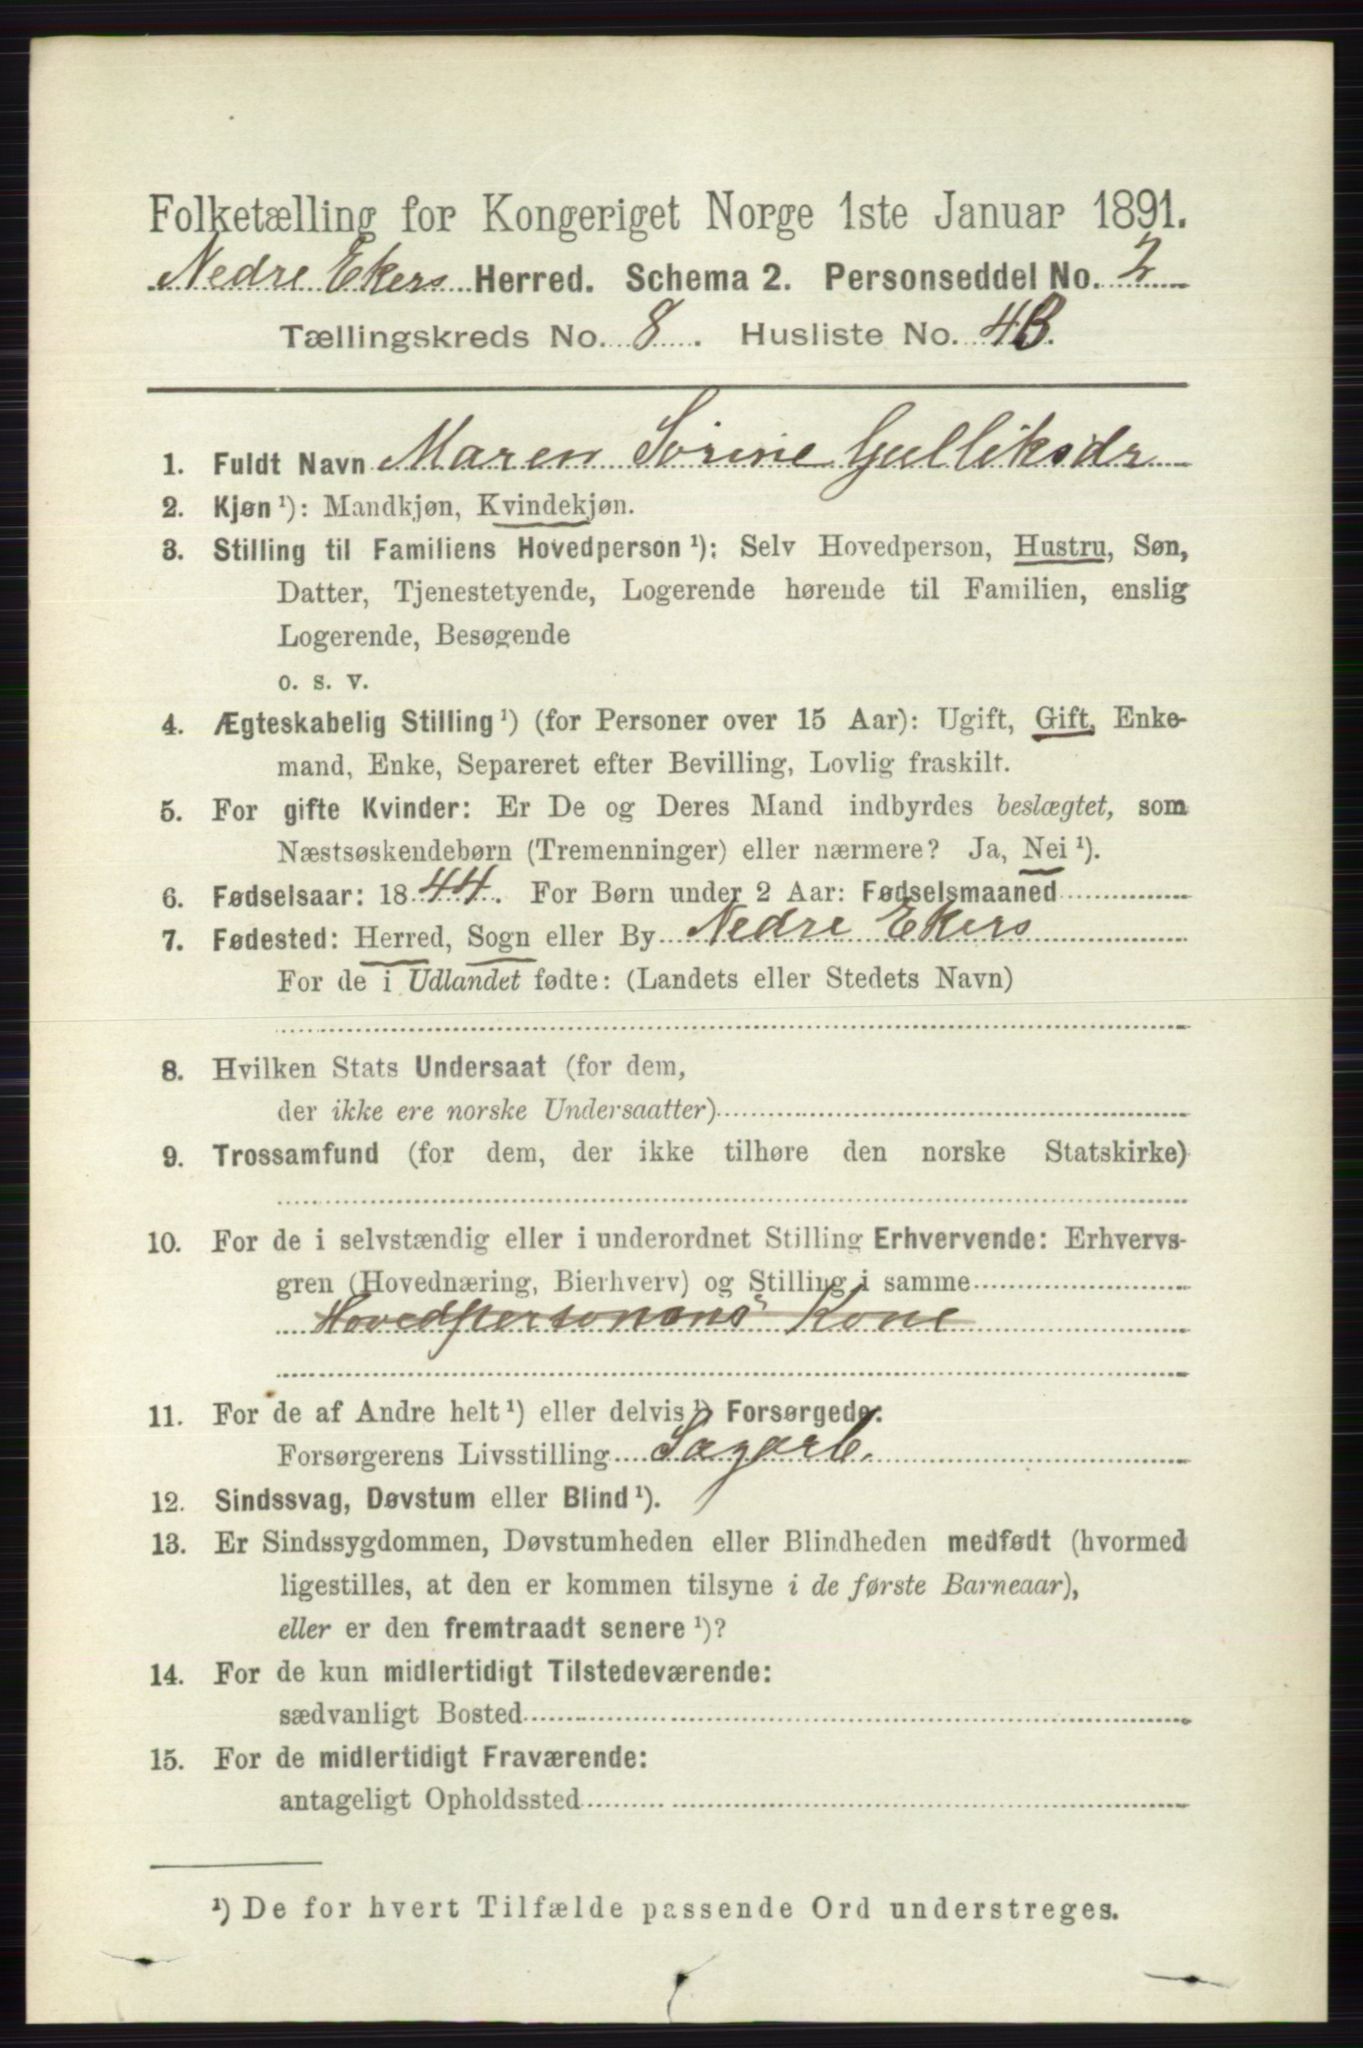 Folketælling for Kongeriget Norge 1ste Januar 1891.
Nedre Ekers Herred. Schema 2. Personseddel No. 2
Tællingskreds No. 8. Husliste No. 4B.
1. Fuldt Navn Maren Sörine Gulliksdr
2. Kjøn ¹): Mandkjøn, Kvindekjøn.
3. Stilling til Familiens Hovedperson ¹): Selv Hovedperson, Hustru, Søn,
Datter, Tjenestetyende, Logerende hørende til Familien, enslig
Logerende, Besøgende
o. s. v.
4. Ægteskabelig Stilling ¹) (for Personer over 15 Aar): Ugift, Gift, Enke-
mand, Enke, Separeret efter Bevilling, Lovlig fraskilt.
5. For gifte Kvinder: Er De og Deres Mand indbyrdes beslægtet, som
Næstsøskendebørn (Tremenninger) eller nærmere? Ja, Nei ¹).
6. Fødselsaar: 1844. For Børn under 2 Aar: Fødselsmaaned
7. Fødested: Herred, Sogn eller By Nedre Ekers
For de i Udlandet fødte: (Landets eller Stedets Navn)
8. Hvilken Stats Undersaat (for dem,
der ikke ere norske Undersaatter)
9. Trossamfund (for dem, der ikke tilhøre den norske Statskirke)
10. For de i selvstændig eller i underordnet Stilling Erhvervende: Erhvervs-
gren (Hovednæring, Bierhverv) og Stilling i samme
Hovedpersonens Kone
11. For de af Andre helt ¹) eller delvis ¹) Forsørgede:
Forsørgerens Livsstilling Sagarb.
12. Sindssvag, Døvstum eller Blind ¹).
13. Er Sindssygdommen, Døvstumheden eller Blindheden medfødt (hvormed
ligestilles, at den er kommen tilsyne i de første Barneaar),
eller er den fremtraadt senere ¹)?
14. For de kun midlertidigt Tilstedeværende:
sædvanligt Bosted
15. For de midlertidigt Fraværende:
antageligt Opholdssted
¹) De for hvert Tilfælde passende Ord understreges.